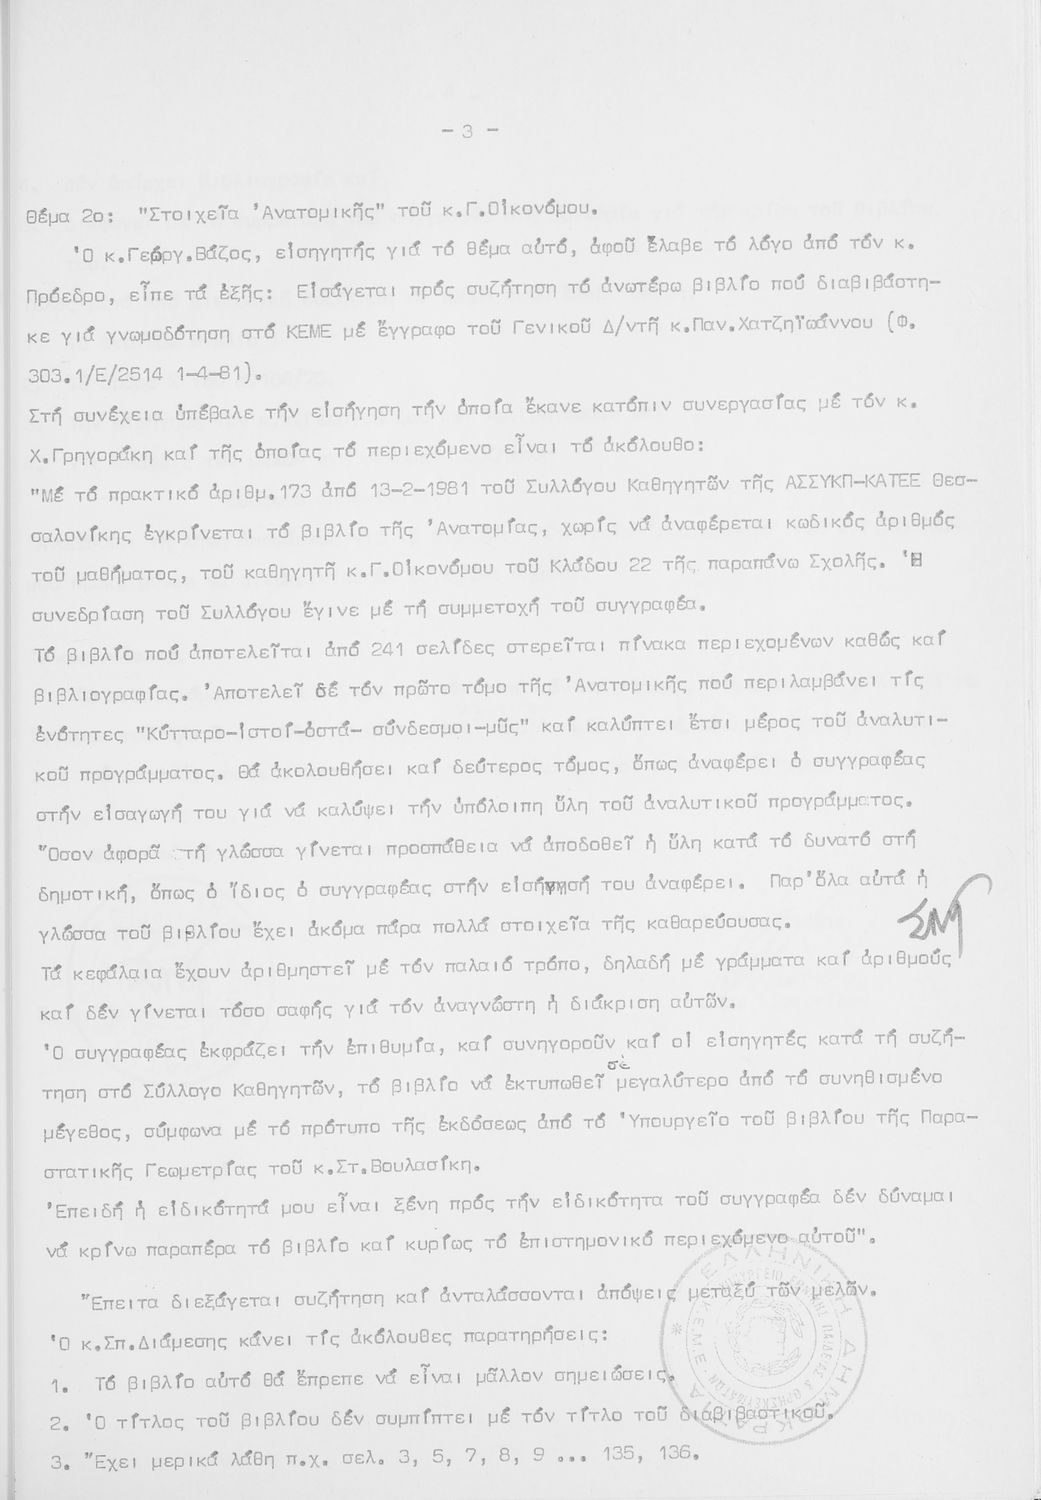 - 3 -
Θέμα 2ο: "Στοιχεῖα Ἀνατομικῆς" τοῦ κ.Γ.Οἰκονόμου.
Ὁ κ.Γεώργ.Βάζος, εἰσηγητής γιά τό θέμα αὐτό, ἀφοῦ ἔλαβε τό λόγο ἀπό τόν κ.
Πρόεδρο, εἶπε τά ἑξῆς: Εἰσάγεται πρός συζήτηση τό ἀνωτέρω βιβλίο πού διαβιβάστη-
κε γιά γνωμοδότηση στό ΚΕΜΕ μέ ἔγγραφο τοῦ Γενικοῦ Δ/ντῆ κ.Παν.Χατζηϊωάννου (Φ.
303.1/Ε/2514 1-4-81).
Στή συνέχεια ὑπέβαλε τήν εἰσήγηση τήν ὁποία ἔκανε κατόπιν συνεργασίας μέ τόν κ.
Χ.Γρηγοράκη καί τῆς ὁποίας τό περιεχόμενο εἶναι τό ἀκόλουθο:
"Μέ τό πρακτικό ἀριθμ.173 ἀπό 13-2-1981 τοῦ Συλλόγου Καθηγητῶν τῆς ΑΣΣΥΚΠ-ΚΑΤΕΕ Θεσ-
σαλονίκης ἐγκρίνεται τό βιβλίο τῆς Ἀνατομίας, χωρίς νά ἀναφέρεται κωδικός ἀριθμός
τοῦ μαθήματος, τοῦ καθηγητῆ κ.Γ.Οἰκονόμου τοῦ Κλάδου 22 τῆς παραπάνω Σχολῆς. Ἡ
συνεδρίαση τοῦ Συλλόγου ἔγινε μέ τή συμμετοχή τοῦ συγγραφέα.
Τό βιβλίο πού ἀποτελεῖται ἀπό 241 σελίδες στερεῖται πίνακα περιεχομένων καθώς καί
βιβλιογραφίας. Ἀποτελεῖ δέ τόν πρῶτο τόμο τῆς Ἀνατομικῆς πού περιλαμβάνει τίς
ἑνότητες "Κύτταρο-ἱστοί-ὀστά- σύνδεσμοι-μῦς" καί καλύπτει ἔτσι μέρος τοῦ ἀναλυτι-
κοῦ προγράμματος. Θά ἀκολουθήσει καί δεύτερος τόμος, ὅπως ἀναφέρει ὁ συγγραφέας
στήν εἰσαγωγή του γιά νά καλύψει τήν ὑπόλοιπη ὕλη τοῦ ἀναλυτικοῦ προγράμματος.
Ὅσον ἀφορᾶ τή γλώσσα γίνεται προσπάθεια νά ἀποδοθεῖ ἡ ὕλη κατά τό δυνατό στή
δημοτική, ὅπως ὁ ἴδιος ὁ συγγραφέας στήν εἰσήγησή του ἀναφέρει. Παρ'ὅλα αὐτά ἡ
γλώσσα τοῦ βιβλίου ἔχει ἀκόμα πάρα πολλά στοιχεῖα τῆς καθαρεύουσας.
Τά κεφάλαια ἔχουν ἀριθμηστεῖ μέ τόν παλαιό τρόπο, δηλαδή μέ γράμματα καί ἀριθμούς
καί δέν γίνεται τόσο σαφής γιά τόν ἀναγνώστη ἡ διάκριση αὐτῶν.
Ὁ συγγραφέας ἐκφράζει τήν ἐπιθυμία, καί συνηγοροῦν καί οἱ εἰσηγητές κατά τή συζή-
τηση στό Σύλλογο Καθηγητῶν, τό βιβλίο νά ἐκτυπωθεῖ σέ μεγαλύτερο ἀπό τό συνηθισμένο
μέγεθος, σύμφωνα μέ τό πρότυπο τῆς ἐκδόσεως ἀπό τό Ὑπουργεῖο τοῦ βιβλίου τῆς Παρα-
στατικῆς Γεωμετρίας τοῦ κ.Στ.Βουλασίκη.
Ἐπειδή ἡ εἰδικότητά μου εἶναι ξένη πρός τήν εἰδικότητα τοῦ συγγραφέα δέν δύναμαι
νά κρίνω παραπέρα τό βιβλίο καί κυρίως τό ἐπιστημονικό περιεχόμενο αὐτοῦ".
Ἔπειτα διεξάγεται συζήτηση καί ἀνταλάσσονται ἀπόψεις μεταξύ τῶν μελῶν.
Ὁ κ.Σπ.Διάμεσης κάνει τίς ἀκόλουθες παρατηρήσεις:
1. Τό βιβλίο αὐτό θά ἔπρεπε νά εἶναι μᾶλλον σημειώσεις.
2. Ὁ τίτλος τοῦ βιβλίου δέν συμπίπτει μέ τόν τίτλο τοῦ διαβιβαστικοῦ.
3. Ἔχει μερικά λάθη π.χ. σελ. 3, 5, 7, 8, 9 ... 135, 136.
ΕΛΛΗΝΙΚΗ ΔΗΜΟΚΡΑΤΙΑ